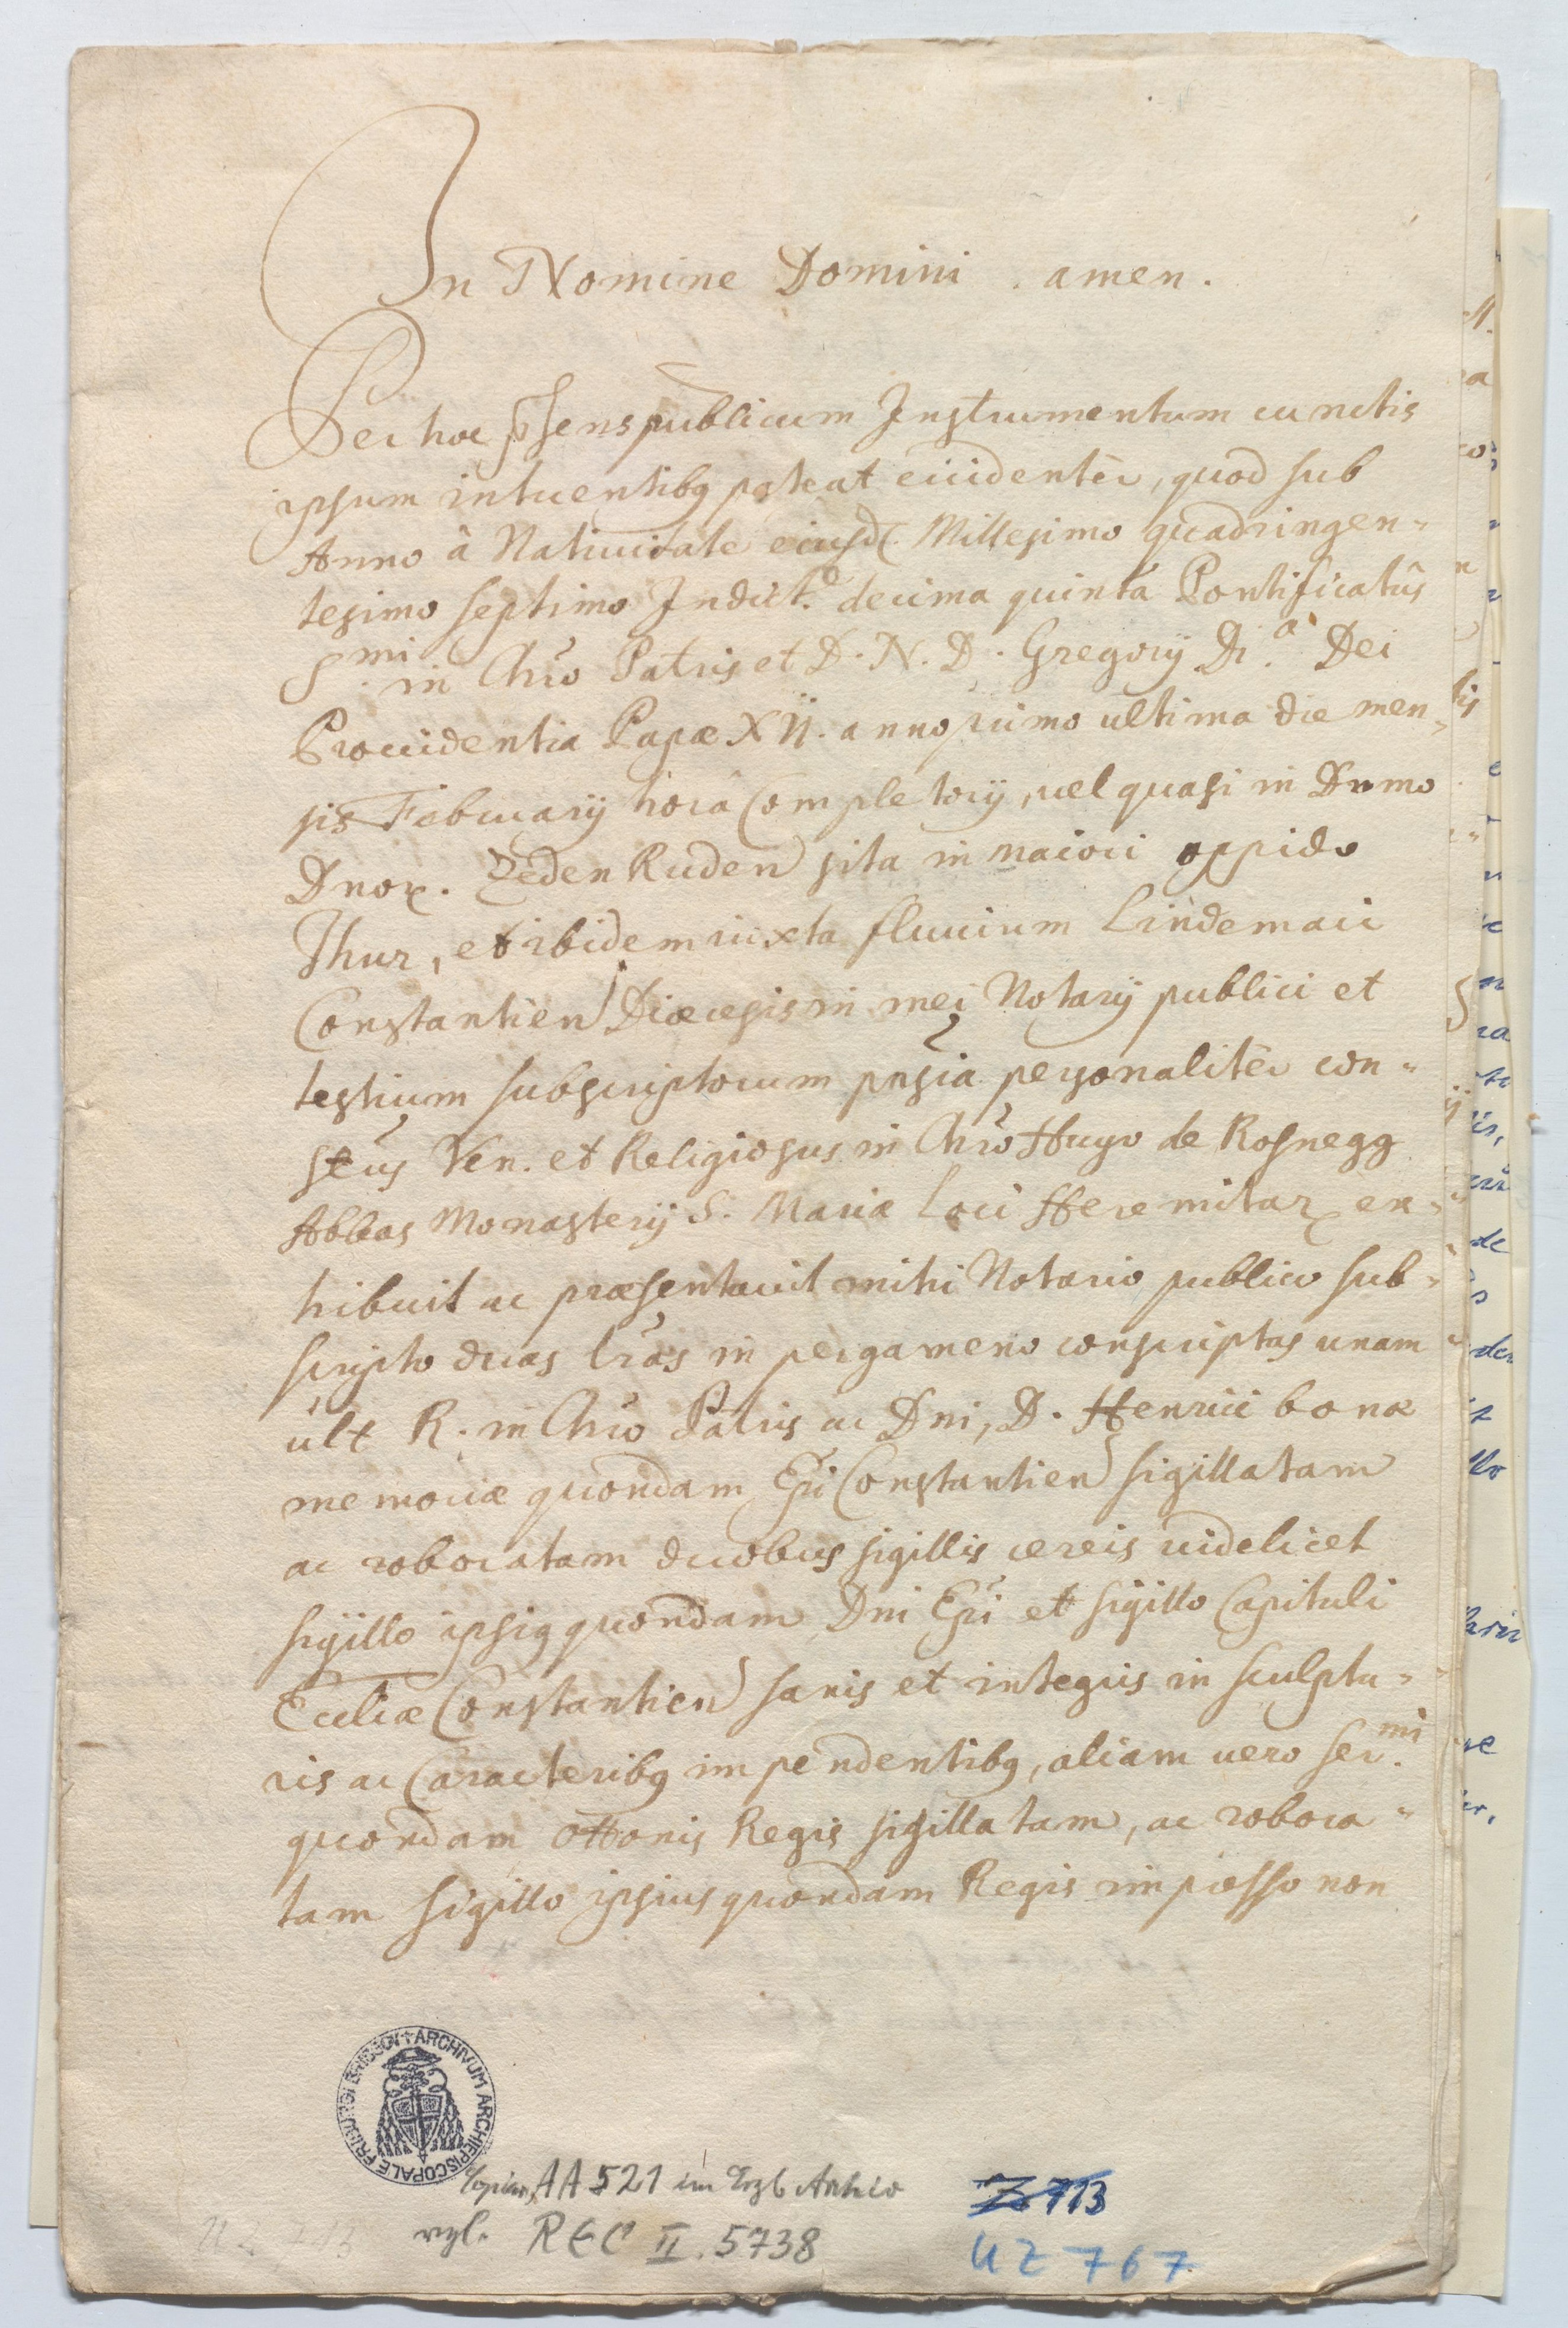 In Nomine Domini . amen .
Per hoc p͞sens publicum Instrumentum cunctis
ipsum intuentibq pateat euidentèr, quod sub
Anno â Natiuitate eiusd. Millesimo quadringen=
tesimo septimo Indict.e decima quinta Pontificatûs
S.mi in Chr̃o Patris et D. N. D. Gregorij Di.a Dei
Prouidentia Papæ XII. anno primo ultima die men=
sis February horâ Completorij, uel quasi in Domo
Dnor. Zeden Ruden sita in maiori oppido
Thur, et ibidem iuxta fluuium Lindemaci
Constantien Diœcesis in mei Notarij publici et
testium subscriptorum pñsia personalitèr con=
stus Ven. et Religiosus in Chr̃o Hugo de Rosnegg
Abbas Monasterij S. Mariæ Loci Heremitar ex=
hibuit ac præsentauit mihi Notario publico sub=
scripto duas lr̃as in pergameno conscriptas unam
ult R. in Chr̃o Patris ac Dni, D. Henrici bonæ
memoriæ quondam Epi Constantien sigillatam
ac roboratam duobus sigillis cereis uidelicet
sigillo ipsiq quondam Dni Epi et sigillo Capituli
Ecclíæ Constantien sanis et integris in sculptu=
ris ac Caracteribq impendentibq, aliam uero ser.mi
quondam Ottonis Regis sigillatam, ac robora=
tam sigillo ipsius quondam Regis impresso non
ARCHIVUM ARCHIEPISCOPALE FRIBURGI BRISGOI
AA 521 im Erzb Archiv
vgl. REC II. 5738
Z 713
UZ 767